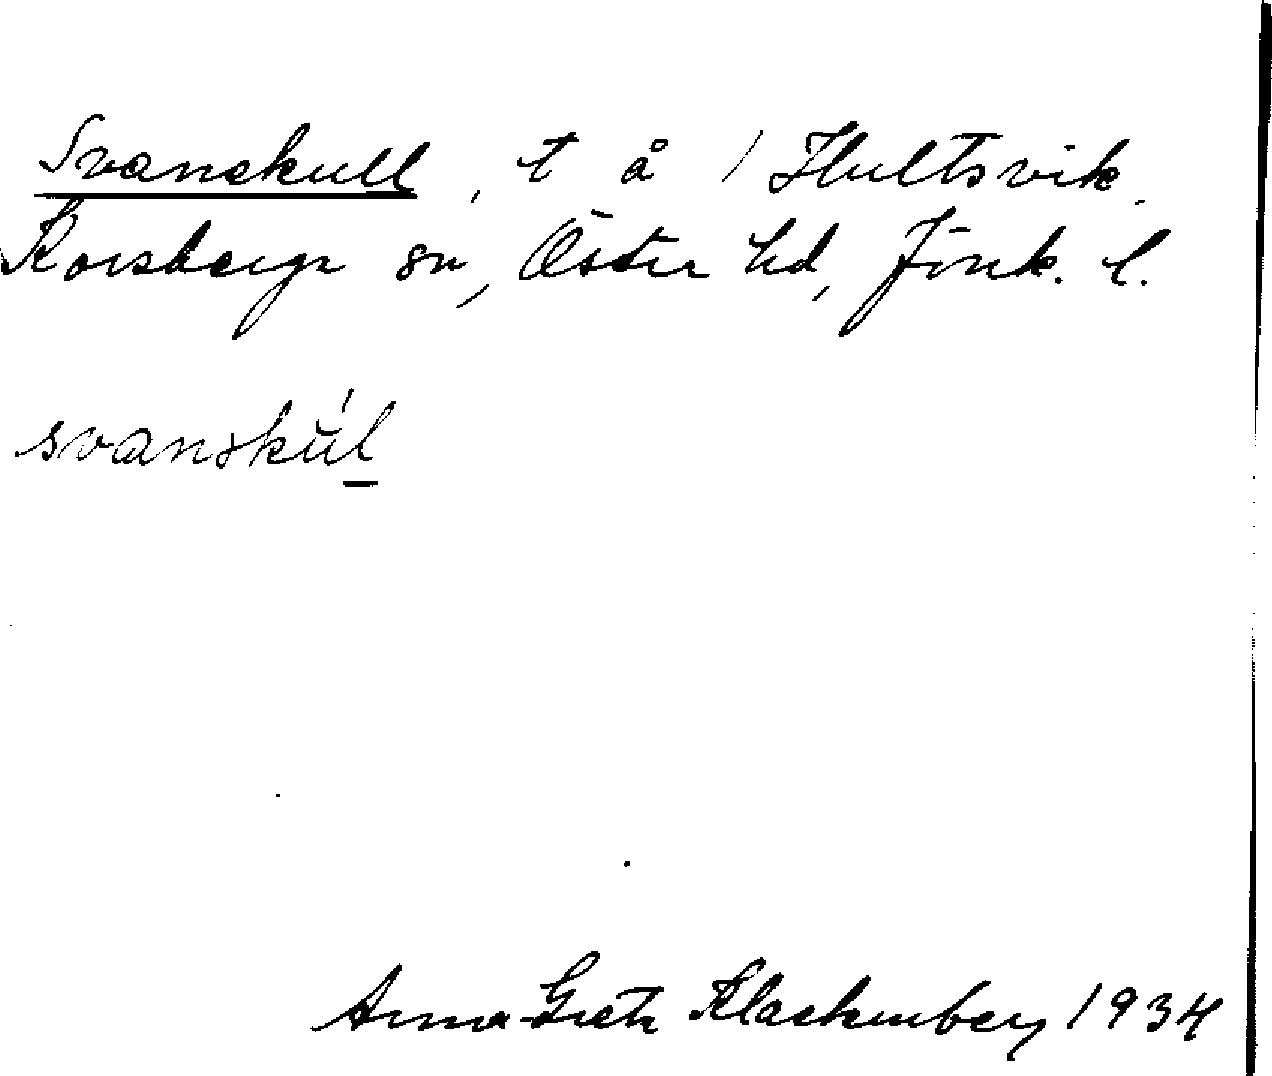 Svanskull, t å / Hultsvik.
Korsberga sn, Öster hd, Jönk. l.
svanskul
Anna-Greta Klackenberg 1934